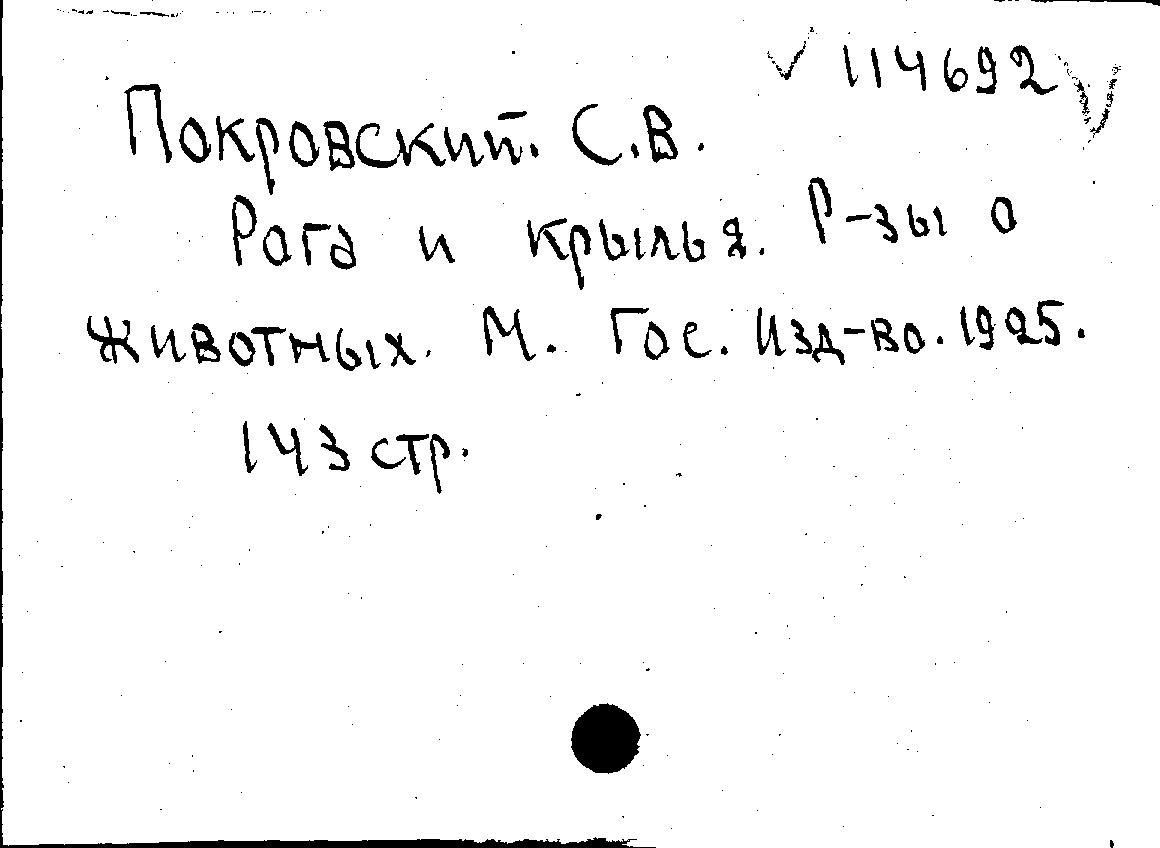 114692
Покровский. С.В.
Рога и крылья. Р-зы о
животных. М. Гос. Изд-во. 1925.
143 стр.